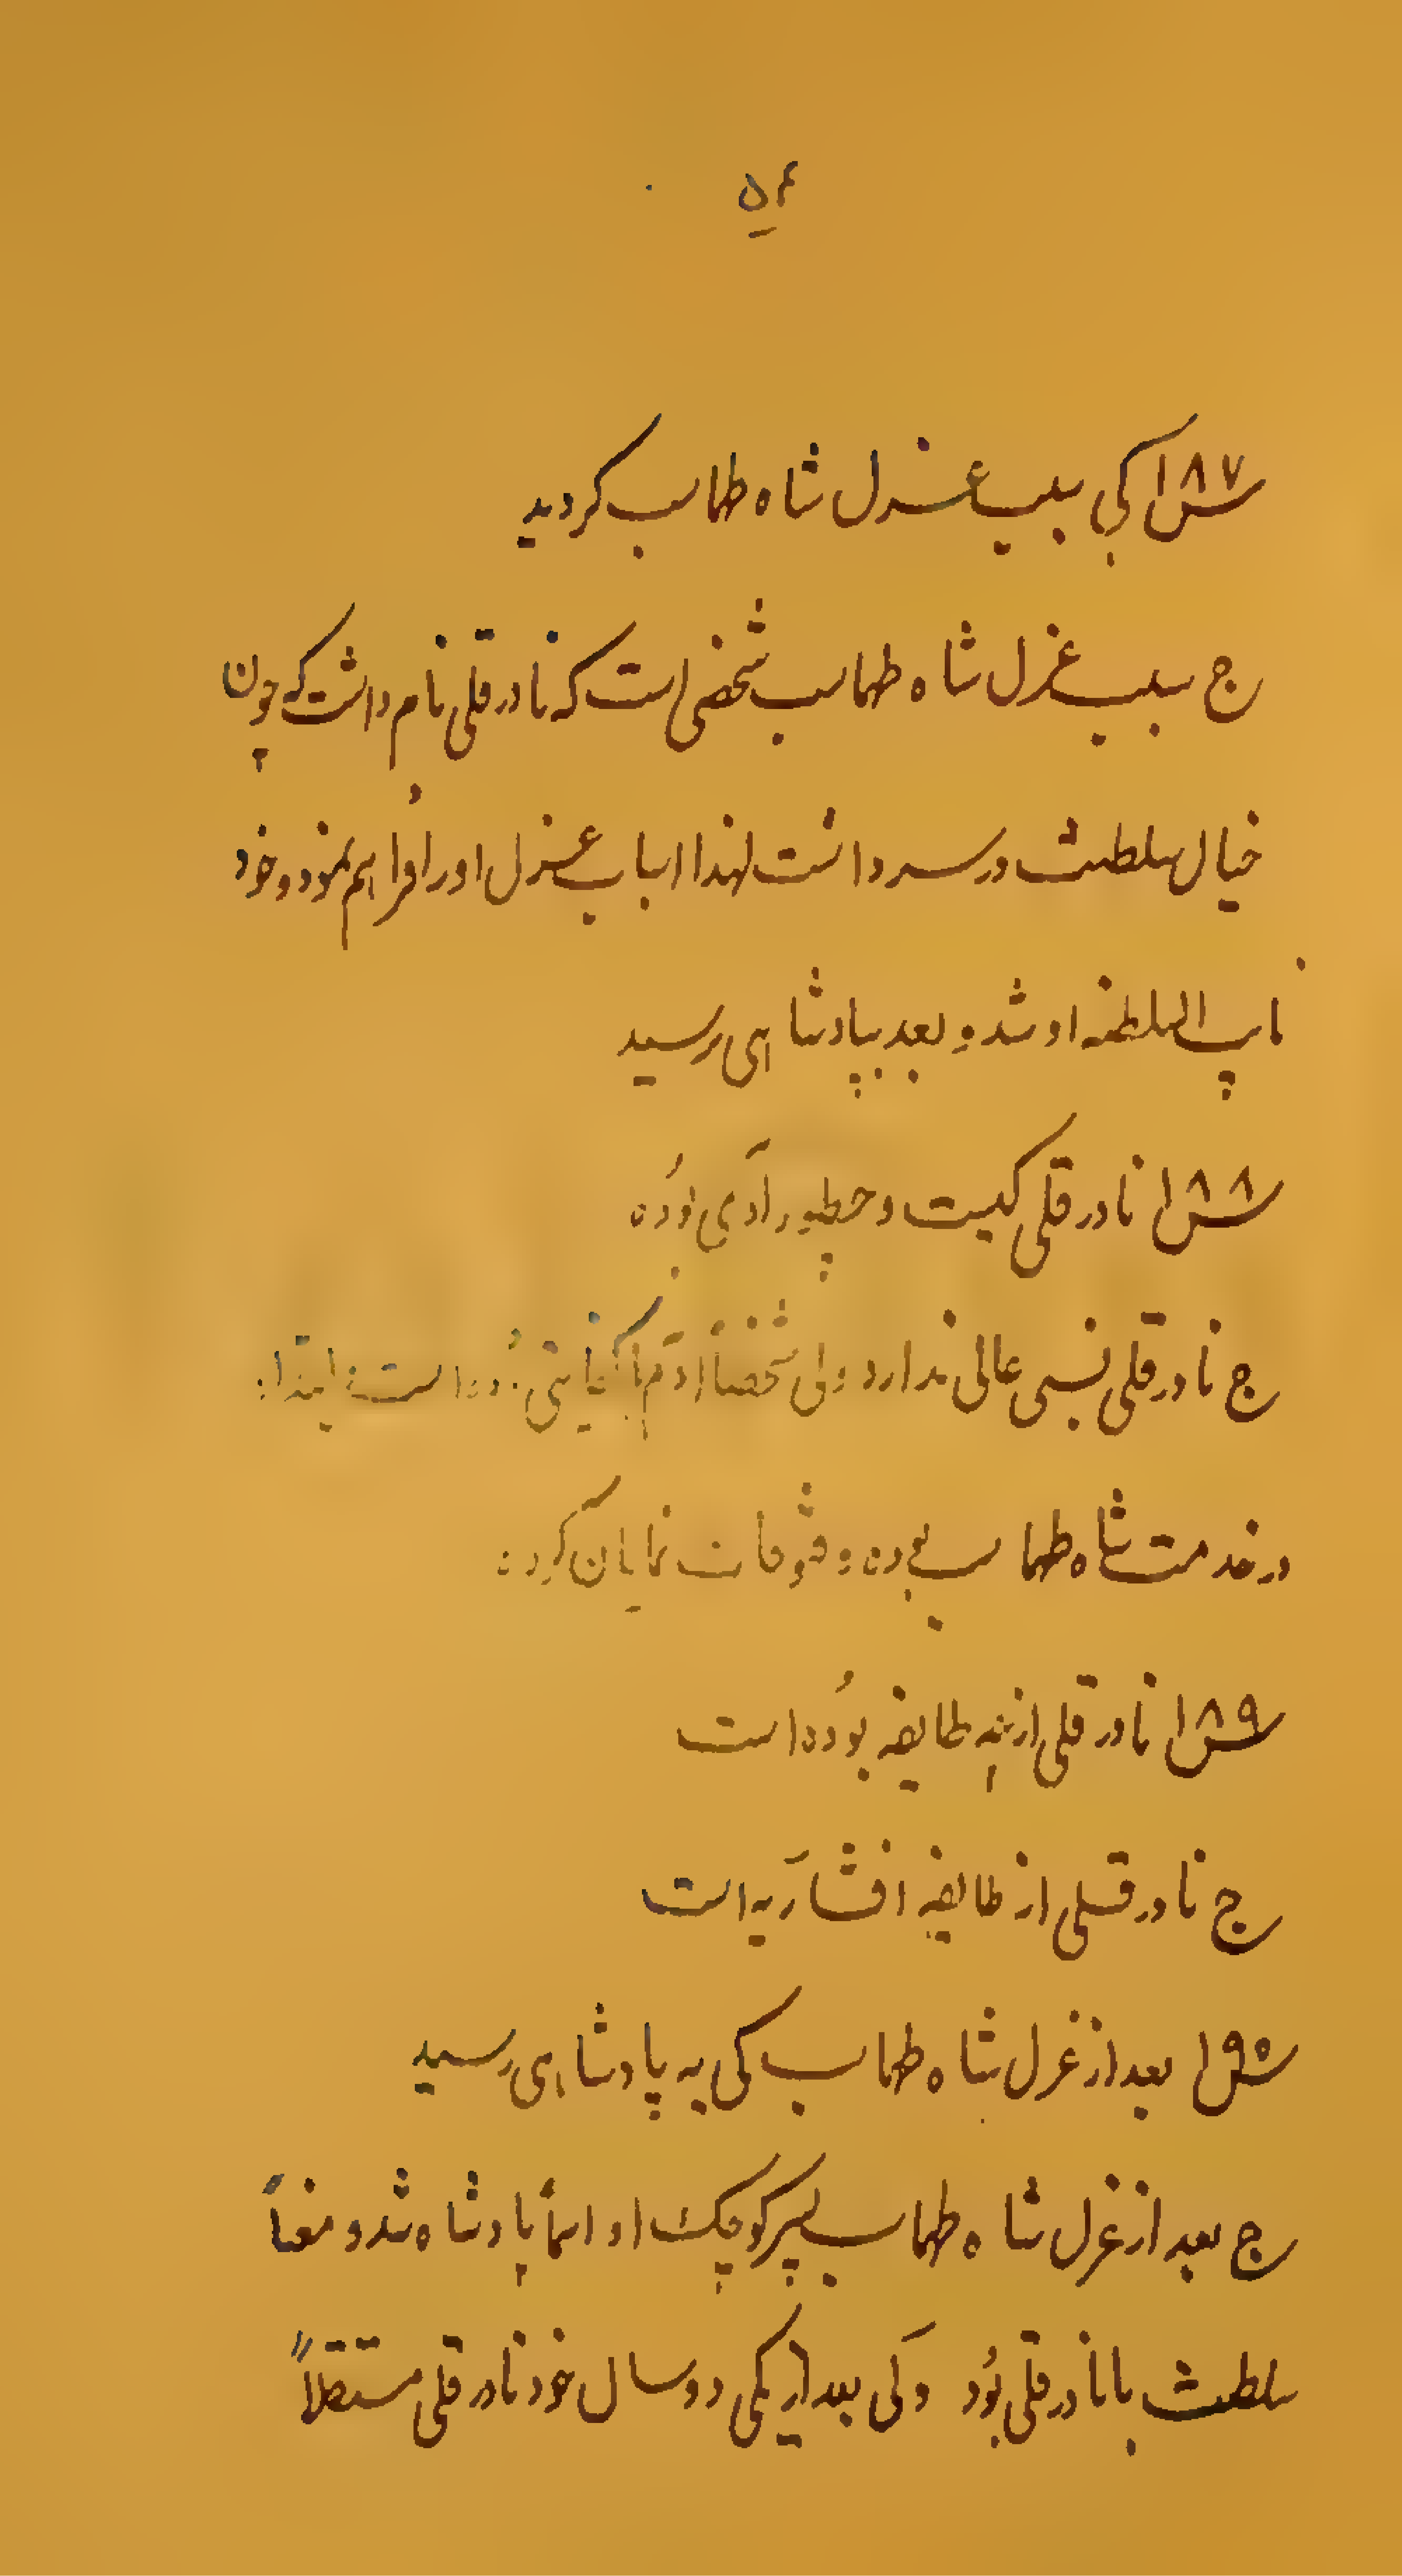 ۵۴
س۱۸۷ کی سبب عزل شاه طهماسب کردید
ج سبب عزل شاه طهماسب شخصی است که نادرقلی نام داشت که چون
خیال سلطنت در سر داشت لهذا اسباب عزل او را فراهم نمود و خود
نایب السلطنه او شده بعد بپادشاهی رسید
س۱۸۸ نادرقلی کیست و چطور آدمی بوده
ج نادرقلی نسبی عالی ندارد ولی شخصاً آدم با کفایتی بوده است و ابتدا
در خدمت شاه طهماسب بوده و فتوحات نمایان کرده
س۱۸۹ نادرقلی از چه طایفه بوده است
ج نادرقلی از طایفه افشاریه است
س۱۹۰ بعد از عزل شاه طهماسب کی به پادشاهی رسید
ج بعد از عزل شاه طهماسب پسر کوچک او اسماً پادشاه شد و معناً
سلطنت با نادرقلی بود ولی بعد از یکی دو سال خود نادرقلی مستقلاً